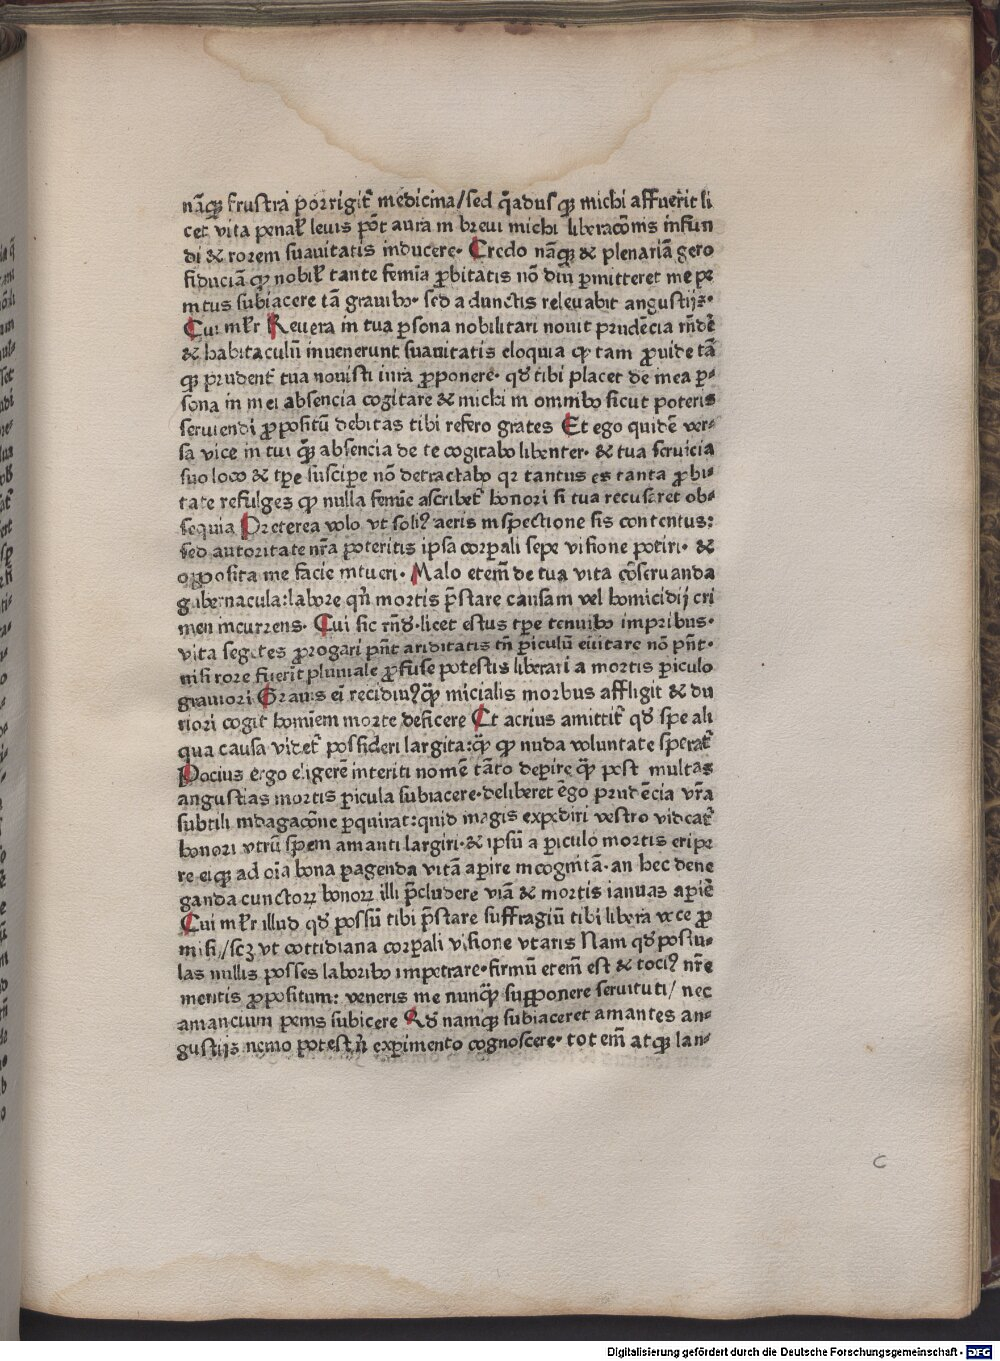 nāqꝫ frustra porrigit᷑ medicina/sed q̄aduſ qꝫ michi affuerit li
cet vita penal̓ leuis pōt aura in breui michi liberacōnis infun
di & rorem suauitatis inducere· Credo nāqꝫ & plenariā gero
fiduciā ꝙ nobil̓ tante femīa ꝓbitatis nō diu ꝑmitteret me pe
nitus subiacere tā grauibꝰ· sed a cunctis releuabit angustijs·
Cui ml̓r Reuera in tua ꝑsona nobilitari nouit prudēcia rn̄dēs
& habitaculū inuenerunt suauitatis eloquia ꝙ tam ꝓuide tā
qꝫ prudent᷑ tua nouisti iura ꝓponere· qđ tibi placet de mea ꝑ-
sona in mei absencia cogitare & michi in omnibꝰ sicut poteris
seruiendi ꝓpositū debitas tibi refero grates Et ego quidē ver-
sa vice in tui qꝫ absencia de te cogitabo libenter· & tua seruicia
suo loco & tꝑe suscipe nō detractabo qꝛ tantus es tanta ꝓbi-
tate refulges ꝙ nulla femīe ascribet᷑ honori si tua recusaret ob-
sequia Preterea volo vt soliꝰ aeris inspectione sis contentus:
sed autoritate nr̄a poteritis ipsa corꝑali sepe visione potiri· &
opposita me facie intueri· Malo etem̄ de tua vita cōseruanda
gubernacula:labore qn̄ mortis p̄stare causam vel homicidij cri
men incurrens· Cui sic rn̄đ·licet estus tꝑe tenuibꝰ imbribus·
vita segetes ꝓrogari pn̄t ariditatis tn̄ ꝑiculū euitare nō pn̄t·
nisi rore fuerīt pluuiale ꝓfuse potestis liberari a mortis ꝑiculo
grauiori Grauis ei recidiuꝰqꝫ inicialis morbus affligit & du
riori cogit homīem morte deficere Et acrius amittit᷑ qđ spe ali
qua causa videt᷑ possideri largita:qꝫ ꝙ nuda voluntate sperat᷑
Pocius ergo eligerē interiti nomē tāto deꝑire qꝫ post multas
angustias mortis ꝑicula subiacere·deliberet ēgo prudēcia vr̄a
subtili indagacōne ꝑquirat:quid magis expediri vestro videat᷑
honori vtrū spem amanti largiri·& ipsū a ꝑiculo mortis eripe
re eiqꝫ ad oīa bona pagenda vitā aꝑire incognitā·an hec dene
ganda cunctoꝝ bonoꝝ illi p̄cludere viā & mortis ianuas aꝑiē
Cui ml̓r illud qđ possū tibi p̄stare suffragiū tibi libera voce ꝓ
misi,/scꝫ vt cottidiana corꝑali visione vtaris Nam qđ postu-
las nullis posses laboribꝰ impetrare·firmū etem̄ est & tociꝰ nr̄e
mentis ꝓpositum: veneris me nunqꝫ supponere seruituti/ nec
amancium penis subicere Qđ namqꝫ subiaceret amantes an-
gustijs nemo potest n̄ experimento cognoscere· tot em̄ atqꝫ lan-
C
Digitalisierung gefördert durch die Deutsche Forschungsgemeinschaft - DFG